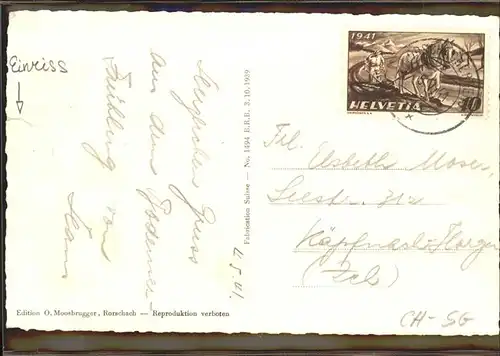 Einriss
Herzlichen Gruss
aus dem Bodensee-
Frühling von
Hans
4.5.41.
Edition O. Moosbrugger, Rorschach — Reproduktion verboten
Fabrication Suisse — No. 1494 B.R.B. 3.10.1939
1941
HELVETIA 10
Frl. Elsbeth Moser,
Seestr.
Käpfnach-Horgen
(Zch)
CH-SG